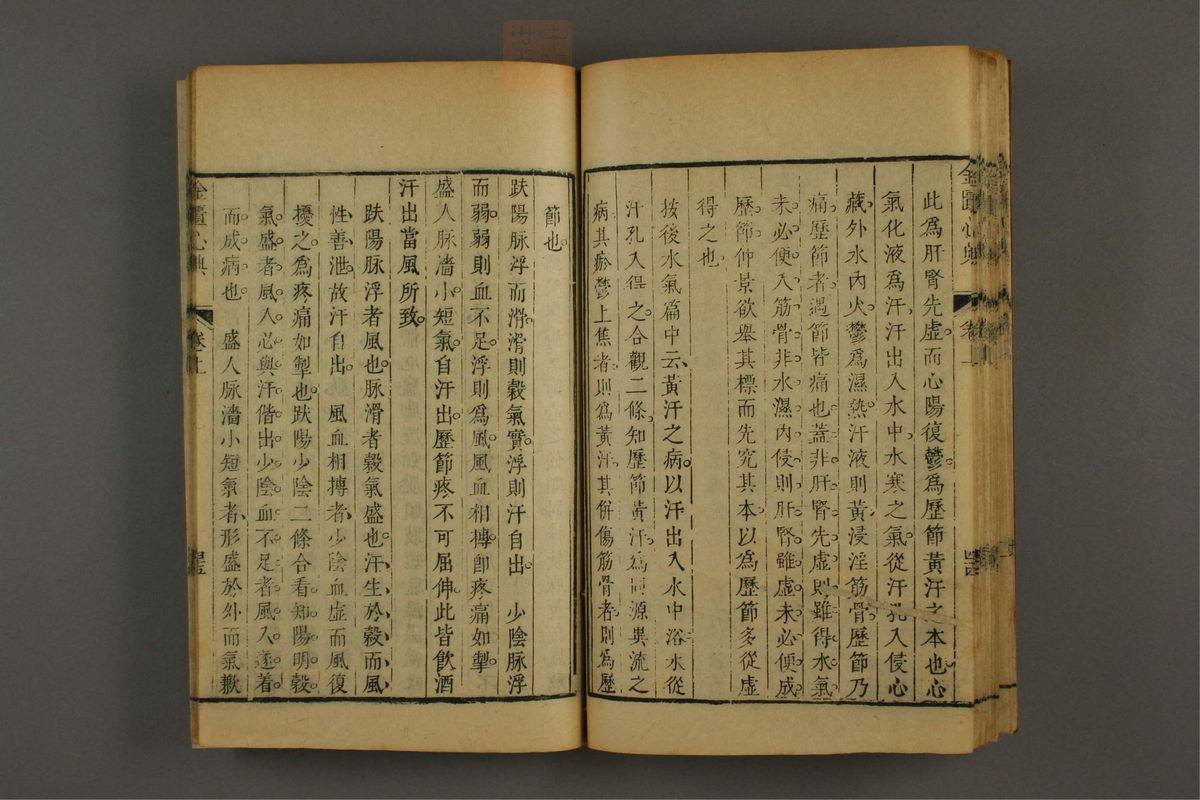 此為肝腎先虛。而心陽復鬱。為歷節黃汗之本也。心
氣化液為汗。汗出入水中。水寒之氣。從汗孔入侵心
藏。外水內火。鬱為濕熱。汗液則黃。浸淫筋骨。歷節乃
痛。歷節者。遇節皆痛也。蓋非肝腎先虛。則雖得水氣。
未必便入筋骨。非水濕內侵。則肝腎雖虛。未必便成
歷節。仲景欲舉其標。而先究其本。以為歷節多從虛
得之也
按後水氣篇中云。黃汗之病。以汗出入水中浴。水從
汗孔入得之。合觀二條。知歷節黃汗。為同源異流之
病。其瘀鬱上焦者。則為黃汗。其併傷筋骨者。則為歷
節也。
趺陽脉浮而滑。滑則穀氣實。浮則汗自出。 少陰脉浮
而弱。弱則血不足。浮則為風。風血相摶。即疼痛如掣。
盛人脉濇小。短氣。自汗出。歷節疼。不可屈伸。此皆飲酒
汗出當風所致。
趺陽脉浮者。風也。脉滑者。穀氣盛也。汗生於穀。而風
性善泄。故汗自出。 風血相摶者。少陰血虛。而風復
擾之。為疼痛如掣也。趺陽少陰二條合看。知陽明穀
氣盛者。風入必與汗偕出。少陰血不足者。風入遂着
而成病也。 盛人脉濇小短氣者。形盛於外。而氣歉
金匱心典
卷上
金匱心典
卷上